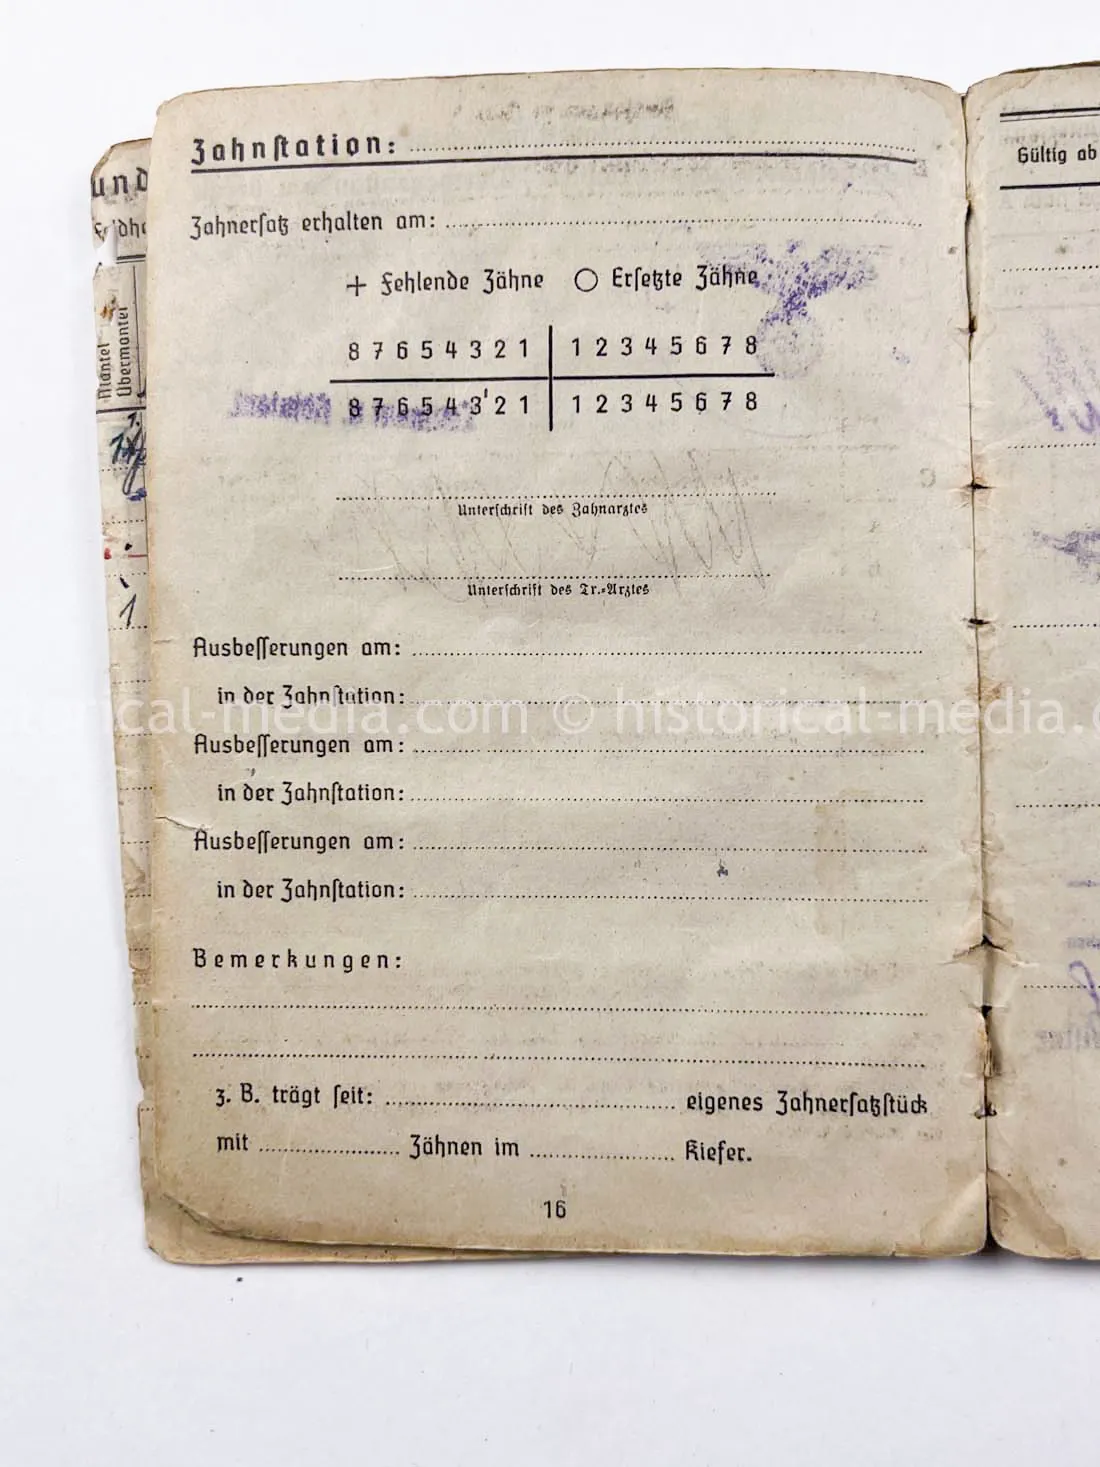 Zahnstation:
Zahnersatz erhalten am:
+ Fehlende Zähne ○ Ersetzte Zähne
8 7 6 5 4 3 2 1 | 1 2 3 4 5 6 7 8
8 7 6 5 4 3 2 1 | 1 2 3 4 5 6 7 8
Unterschrift des Zahnarztes
Unterschrift des Tr.-Arztes
Ausbesserungen am:
in der Zahnstation:
historical-media.com © historical-media.com
Ausbesserungen am:
in der Zahnstation:
Ausbesserungen am:
in der Zahnstation:
Bemerkungen:
z. B. trägt seit: eigenes Zahnersatzstück
mit Zähnen im Kiefer.
16
und
Mantel
Übermantel
Gültig ab